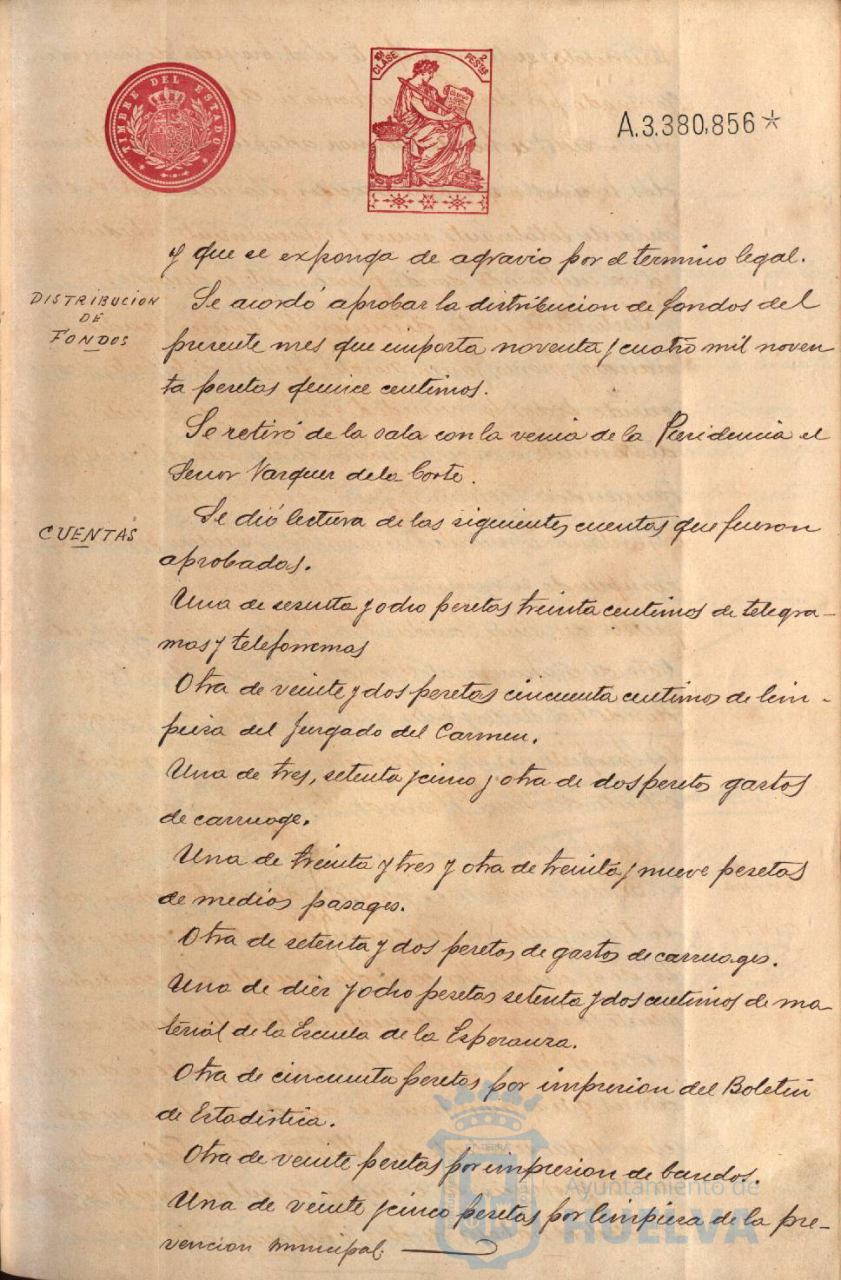 TIMBRE DEL ESTADO
10ª CLASE
2 PESTAS
A.3.380.856*
y que se exponga de agravio por el termino legal.
DISTRIBUCION
DE
FONDOS
Se acordó aprobar la distribucion de fondos del
presente mes que importa noventa y cuatro mil noven
ta pesetas quince centimos.
Se retiró de la sala con la venia de la Presidencia el
Señor Vazquez de la Corte.
CUENTAS
Se dió lectura de las siguientes cuentas que fueron
aprobadas.
Una de sesenta y ocho pesetas treinta centimos de telegra-
mas y telefonemas
Otra de veinte y dos pesetas cincuenta centimos de lim-
pieza del Juzgado del Carmen.
Una de tres, setenta y cinco y otra de dos pesetas gastos
de carruage.
Una de treinta y tres y otra de treinta y nueve pesetas
de medios pasages.
Otra de setenta y dos pesetas de gastos de carruages.
Una de diez y ocho pesetas setenta y dos centimos de ma-
terial de la Escuela de la Esperanza.
Otra de cincuenta pesetas por impresion del Boletin
de Estadistica.
Otra de veinte pesetas por impresion de bandos.
Una de veinte y cinco pesetas por limpieza de la pre-
vencion municipal.
Ayuntamiento de
HUELVA